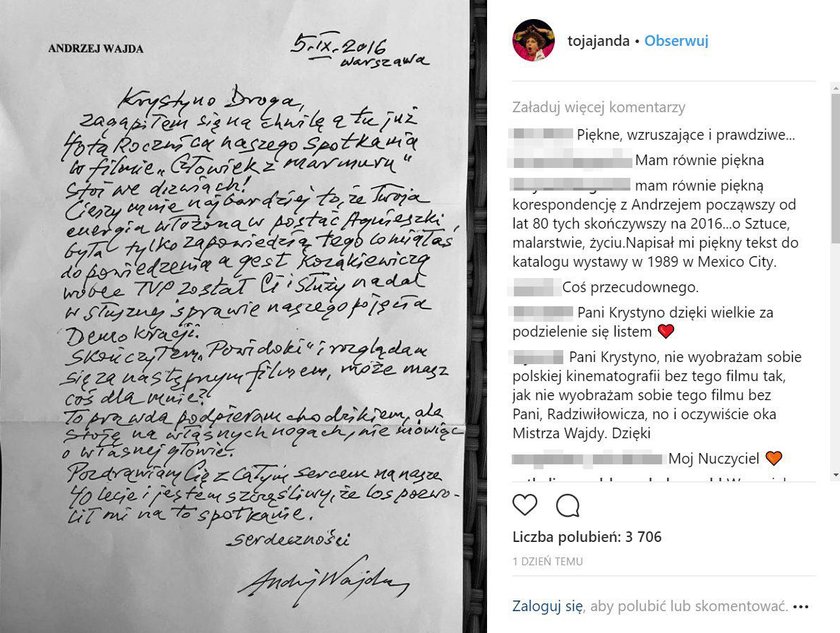 ANDRZEJ WAJDA
5.IX.2016
Warszawa
Krystyno Droga,
zagapiłem się na chwilę a tu już
40tą Rocznica naszego spotkania
w filmie „Człowiek z marmuru"
stoi we drzwiach!
Cieszy mnie najbardziej to, że Twoja
energia włożona w postać Agnieszki
była tylko zapowiedzią tego co miałaś
do powiedzenia a gest Kozakiewicza
wobec TVP został Ci i służy nadal
w słusznej sprawie naszego pojęcia
Demokracji.
Skończyłem „Powidoki" i rozglądam
się za następnym filmem, może masz
coś dla mnie?!
To prawda podpieram chodzikiem, ale
stoję na własnych nogach, nie mówiąc
o własnej głowie.
Pozdrawiam Cię z całym sercem na nasze
40 lecie i jestem szczęśliwy, że los pozwo-
lił mi na to spotkanie.
serdeczności
Andrzej Wajda
tojajanda • Obserwuj
Załaduj więcej komentarzy
Piękne, wzruszające i prawdziwe...
Mam równie piękna
mam równie piękną
korespondencję z Andrzejem począwszy od
lat 80 tych skończywszy na 2016...o Sztuce,
malarstwie, życiu.Napisał mi piękny tekst do
katalogu wystawy w 1989 w Mexico City.
Coś przecudownego.
Pani Krystyno dzięki wielkie za
podzielenie się listem ❤️
Pani Krystyno, nie wyobrażam sobie
polskiej kinematografii bez tego filmu tak,
jak nie wyobrażam sobie tego filmu bez
Pani, Radziwiłowicza, no i oczywiście oka
Mistrza Wajdy. Dzięki
Moj Nuczyciel 🧡
Liczba polubień: 3 706
1 DZIEŃ TEMU
Zaloguj się, aby polubić lub skomentować. •••